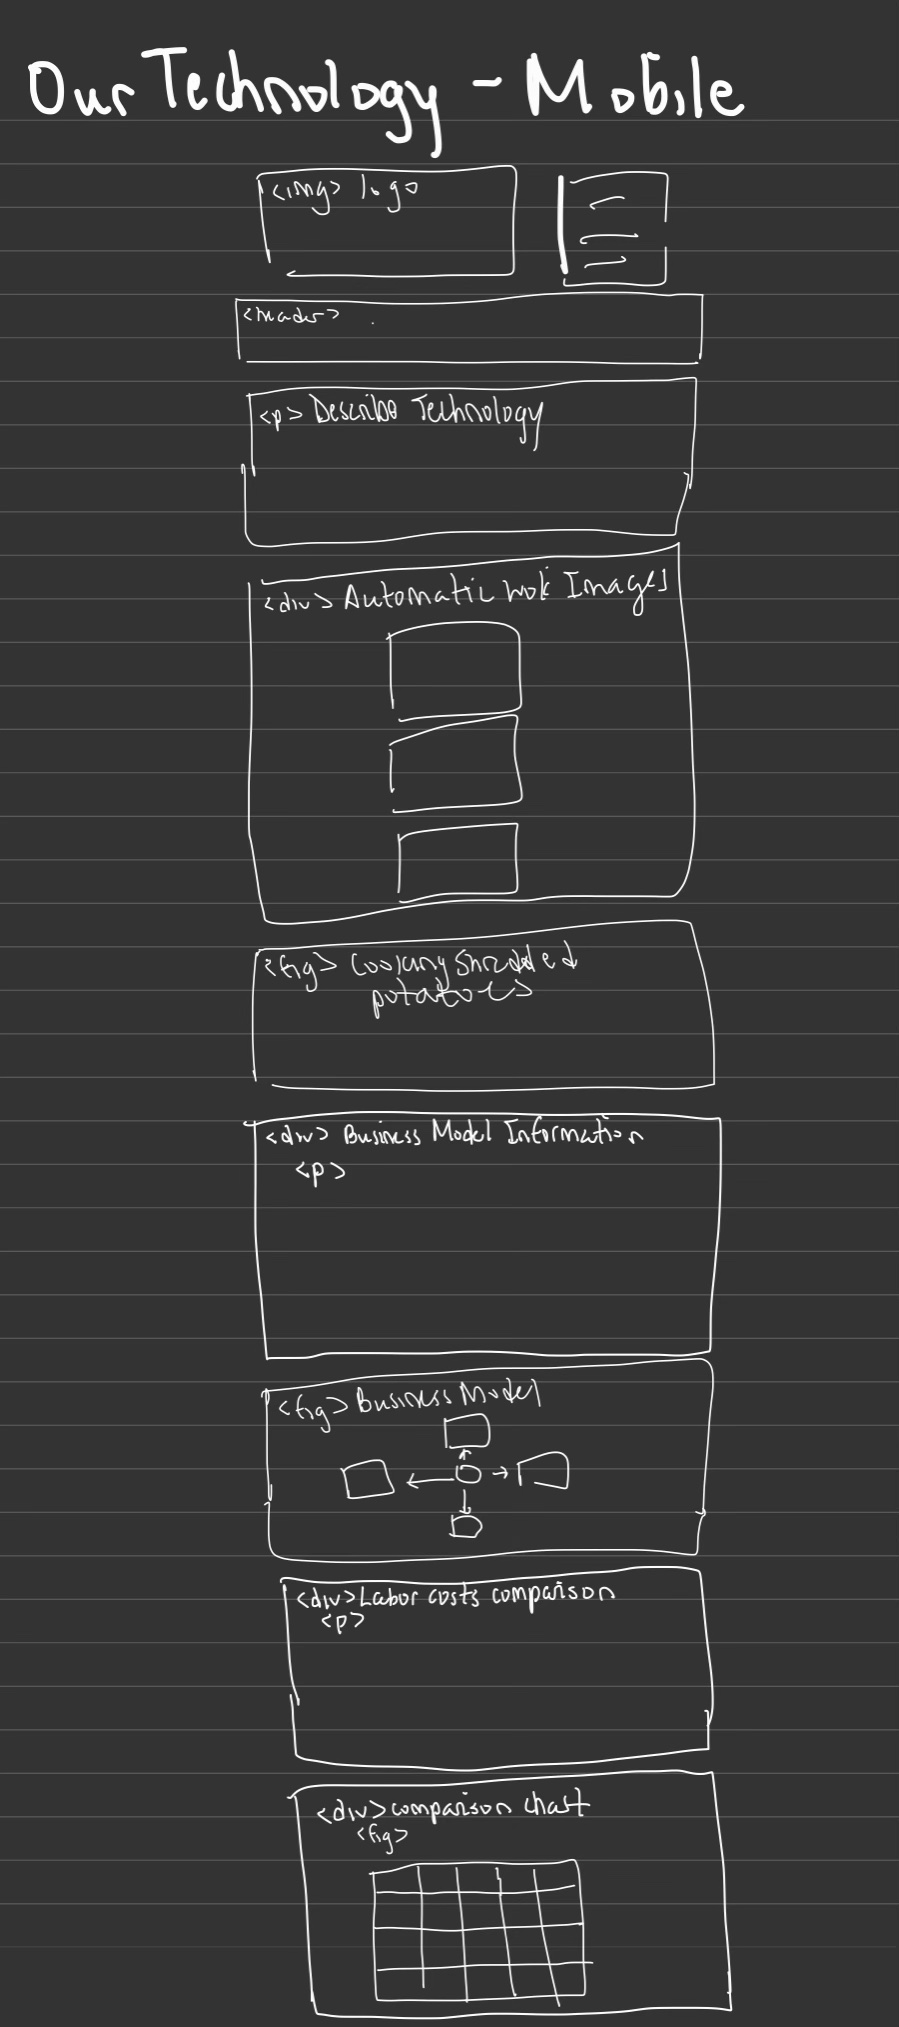 Our Technology - Mobile
<img> logo
<header>
<p> Describe Technology
<div> Automatic Wok Images
<fig> Cooking Shredded
potatoes
<div> Business Model Information
<p>
<fig> Business Model
<div> Labor costs comparison
<p>
<div> comparison chart
<fig>